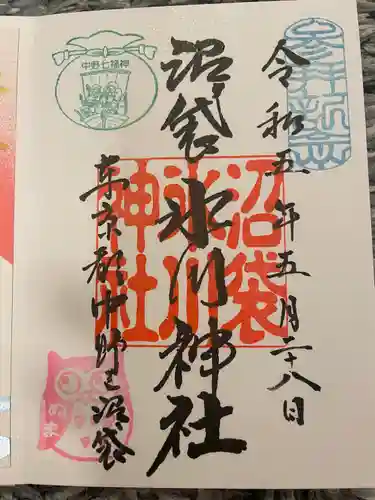 令和五年五月二十八日
沼袋氷川神社
東京都中野区沼袋
沼袋
氷川
神社
中野七福神